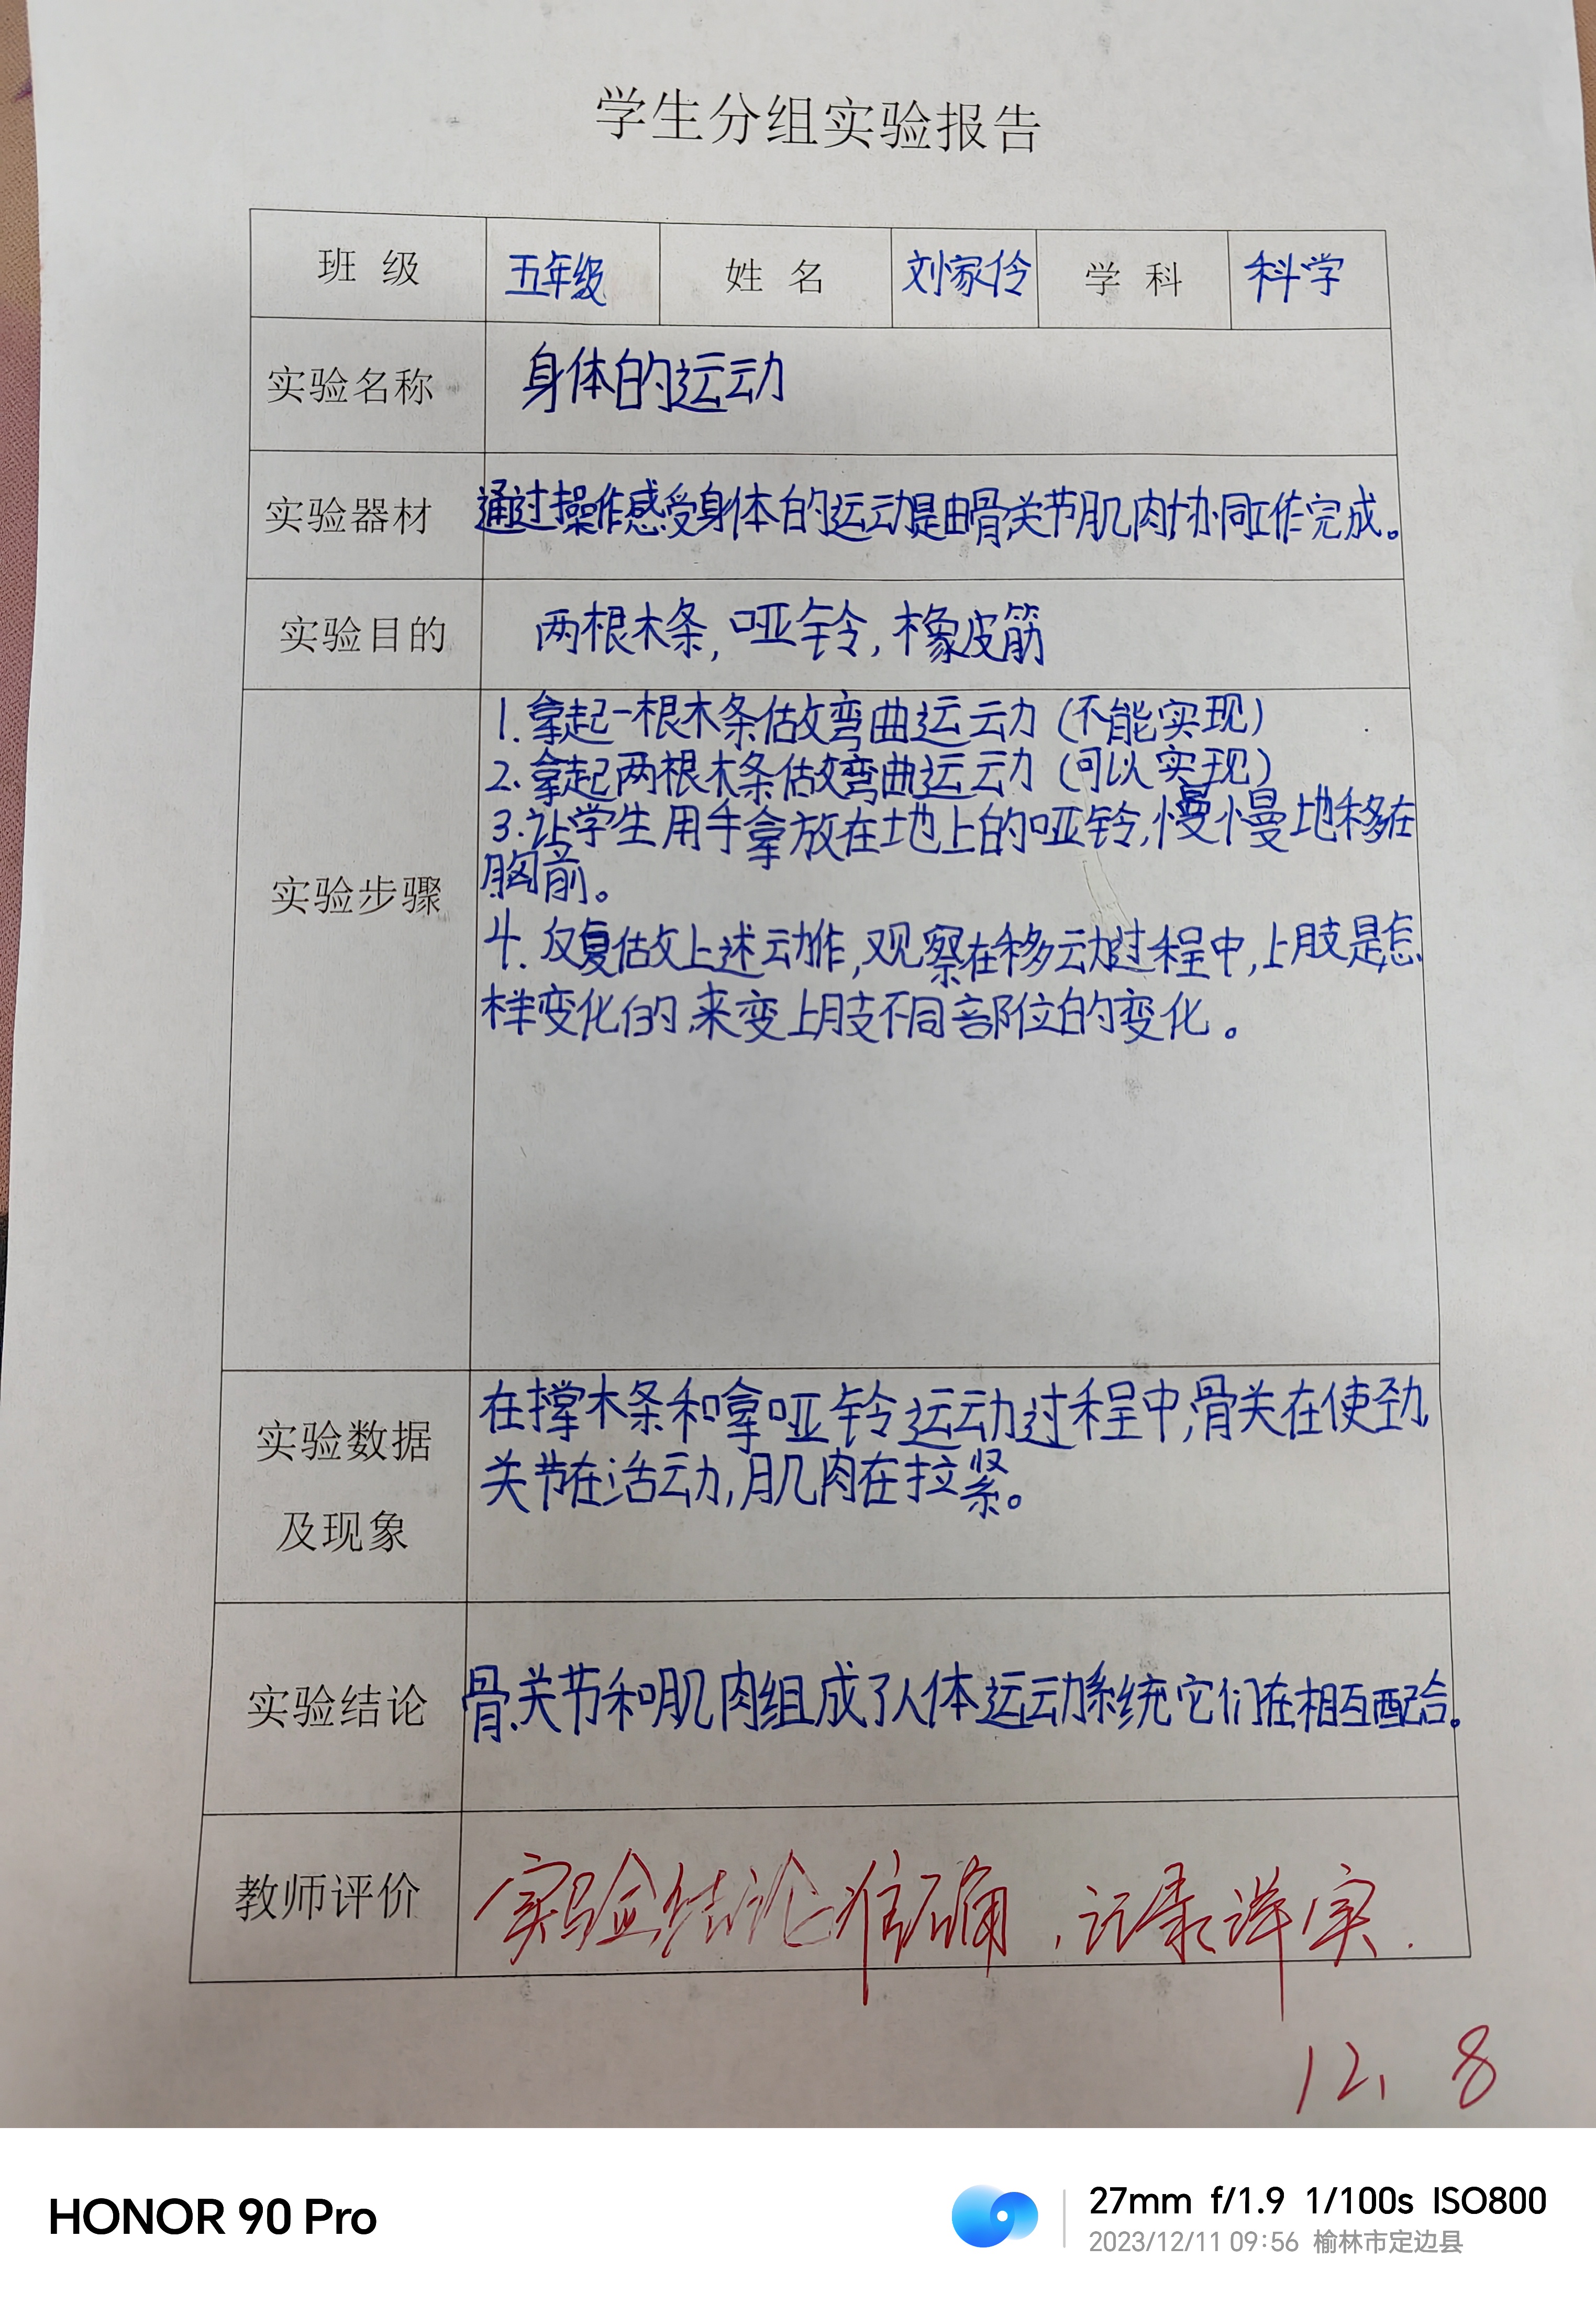 学生分组实验报告
班 级 五年级 姓 名 刘家伶 学 科 科学
实验名称 身体的运动
实验器材 通过操作感受身体的运动是由骨关节肌肉协同工作完成。
实验目的 两根木条，哑铃，橡皮筋
1.拿起一根木条做弯曲运动（不能实现）
2.拿起两根木条做弯曲运动（可以实现）
3.让学生用手拿放在地上的哑铃，慢慢地移在
胸前。
实验步骤
4.反复做上述动作，观察在移动过程中，上肢是怎
样变化的，来变上肢不同部位的变化。
在撑木条和拿哑铃运动过程中，骨关在使劲，
实验数据
关节在活动，肌肉在拉紧。
及现象
实验结论 骨关节和肌肉组成了人体运动系统它们在相互配合。
教师评价 实验结论准确，记录详实.
12、8
HONOR 90 Pro
27mm f/1.9 1/100s ISO800
2023/12/11 09:56 榆林市定边县